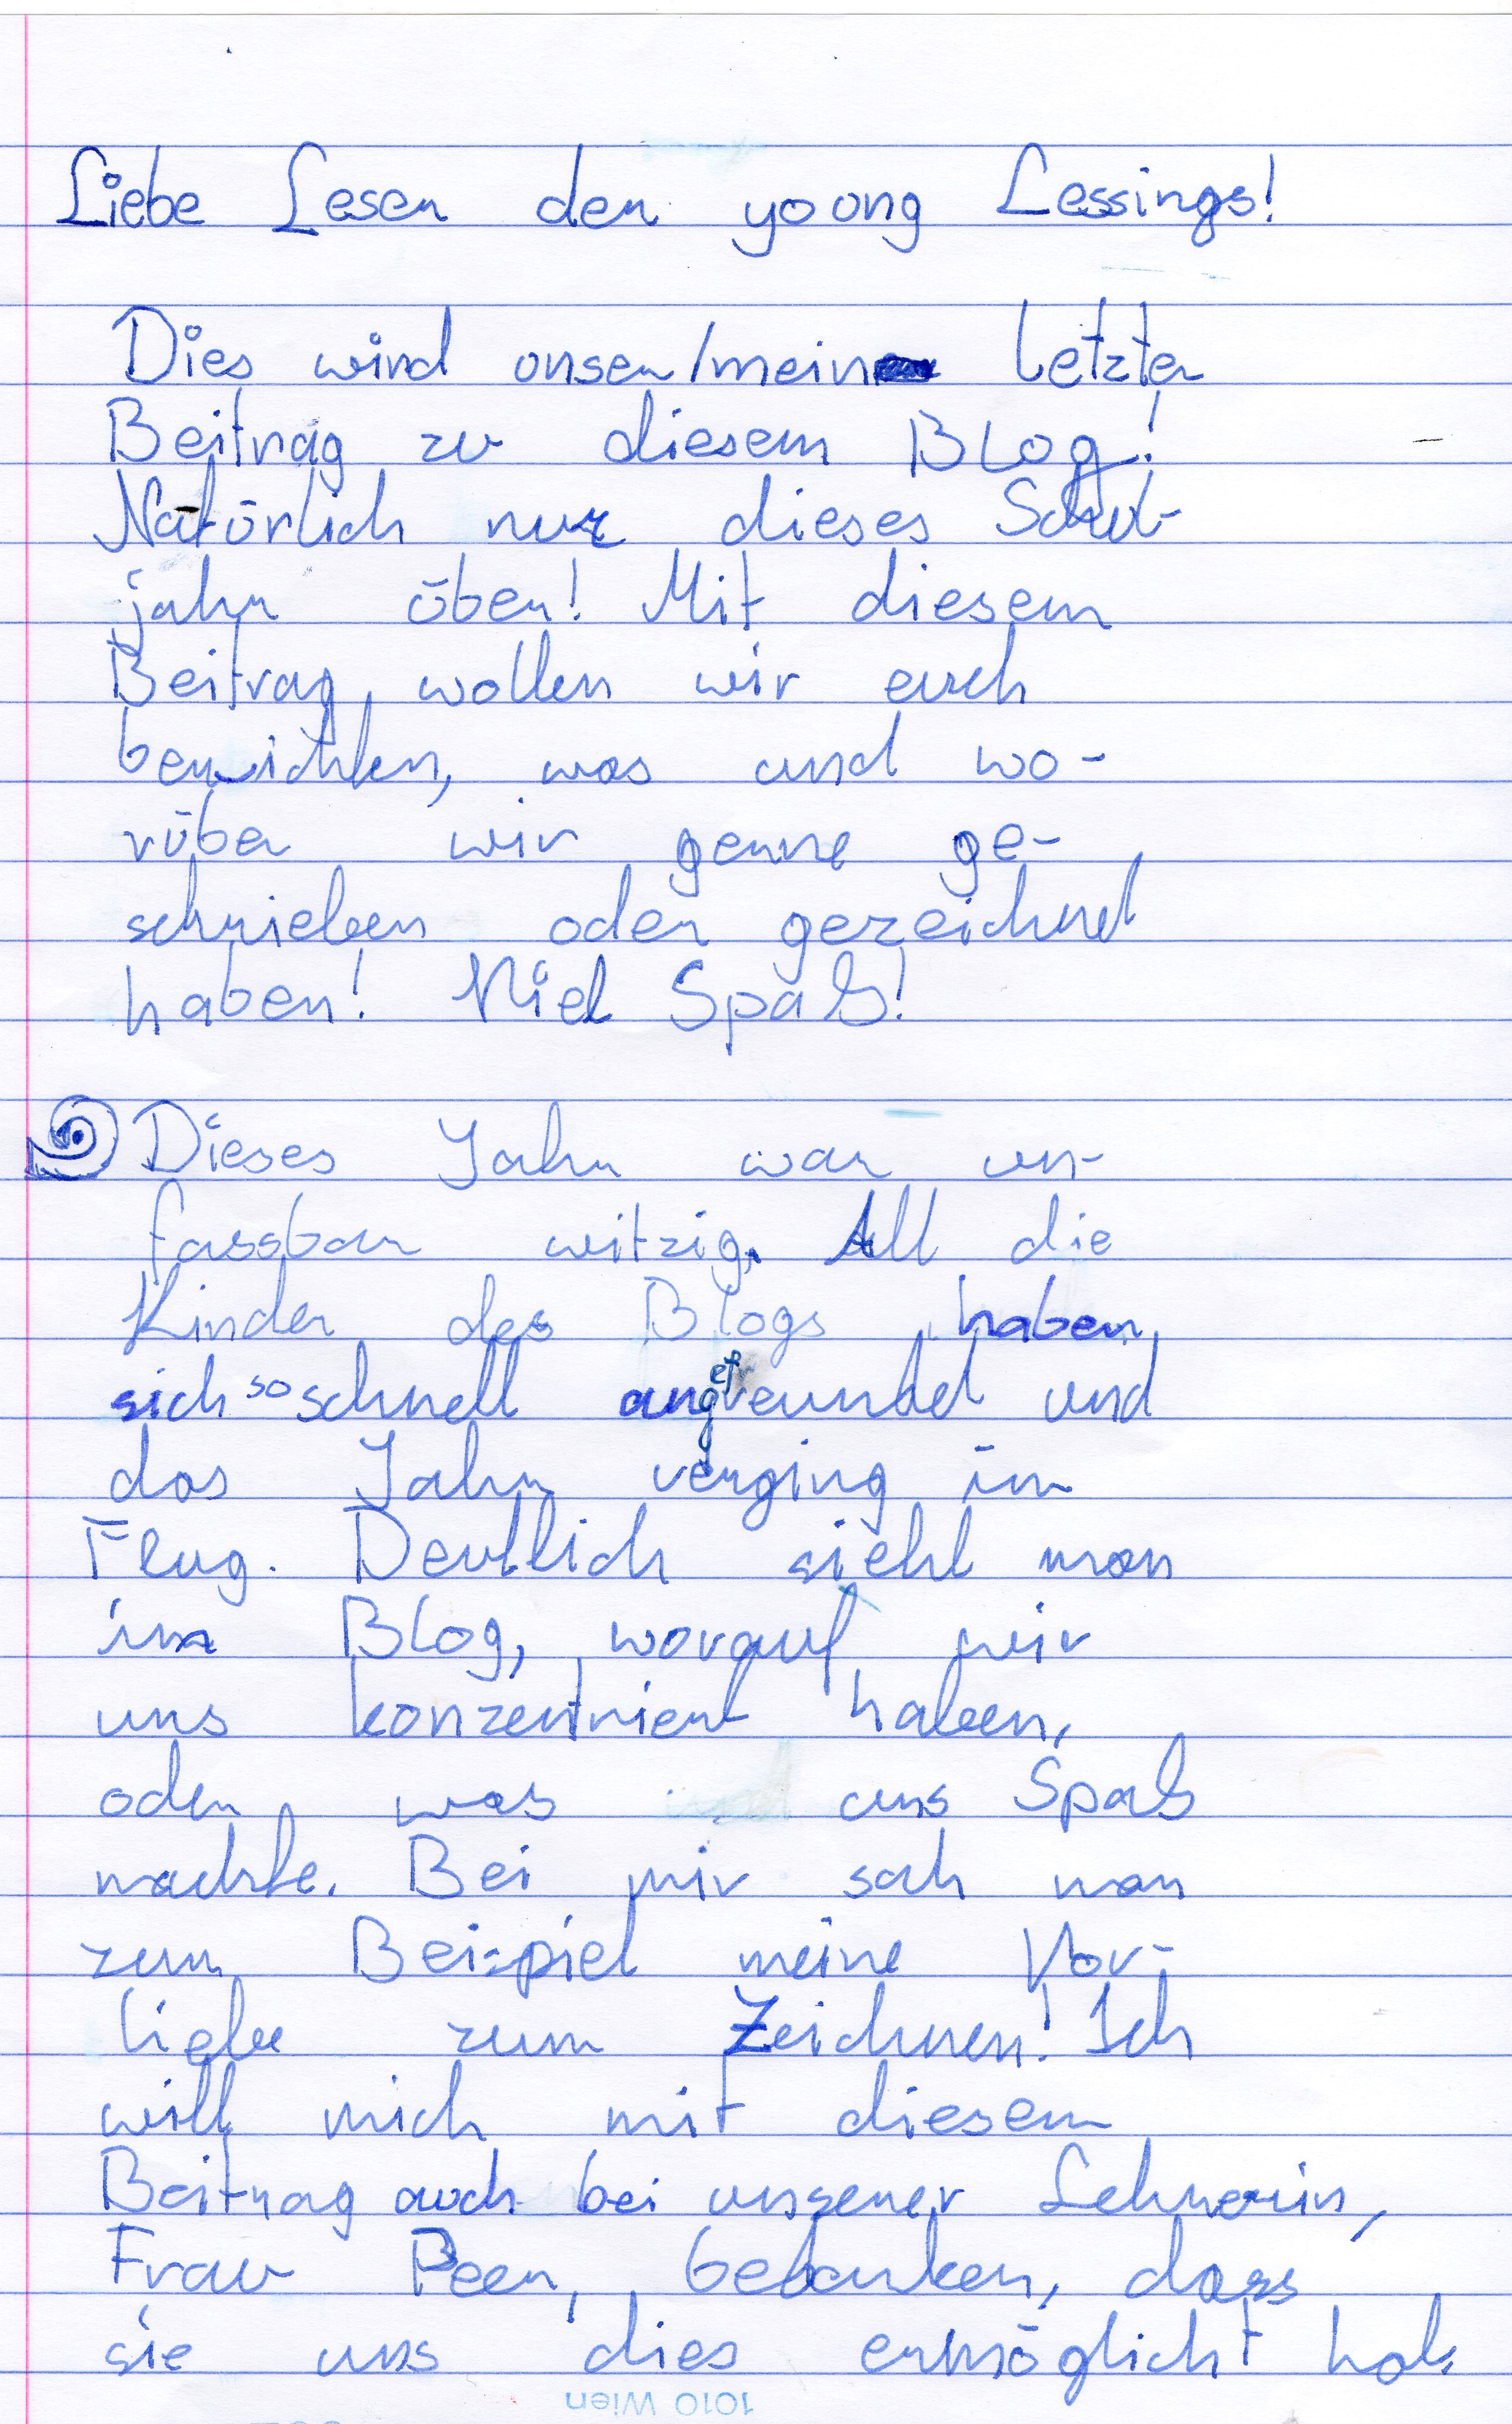 Liebe Leser der young Lessings!
Dies wird unser/mein letzter
Beitrag zu diesem Blog!
Natürlich nur dieses Schul-
jahr über! Mit diesem
Beitrag wollen wir euch
berichten, was und wo-
rüber wir gerne ge-
schrieben oder gezeichnet
haben! Viel Spaß!
Dieses Jahr war un-
fassbar witzig. All die
Kinder des Blogs haben
sich so schnell angefreundet und
das Jahr verging im
Flug. Deutlich sieht man
im Blog, worauf wir
uns konzentriert haben,
oder was uns Spaß
machte. Bei mir sah man
zum Beispiel meine Vor-
liebe zum Zeichnen! Ich
will mich mit diesem
Beitrag auch bei unserer Lehrerin,
Frau Beer, bedanken, dass
sie uns dies ermöglicht hat.
1010 Wien